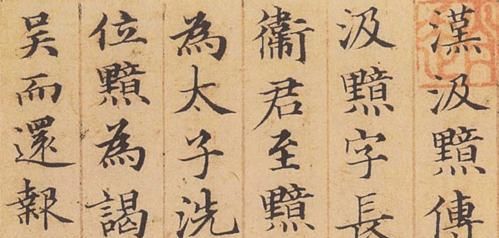 漢汲黯傳
汲黯字長
衛君至黯
為太子洗
位黯為謁
吳而還報